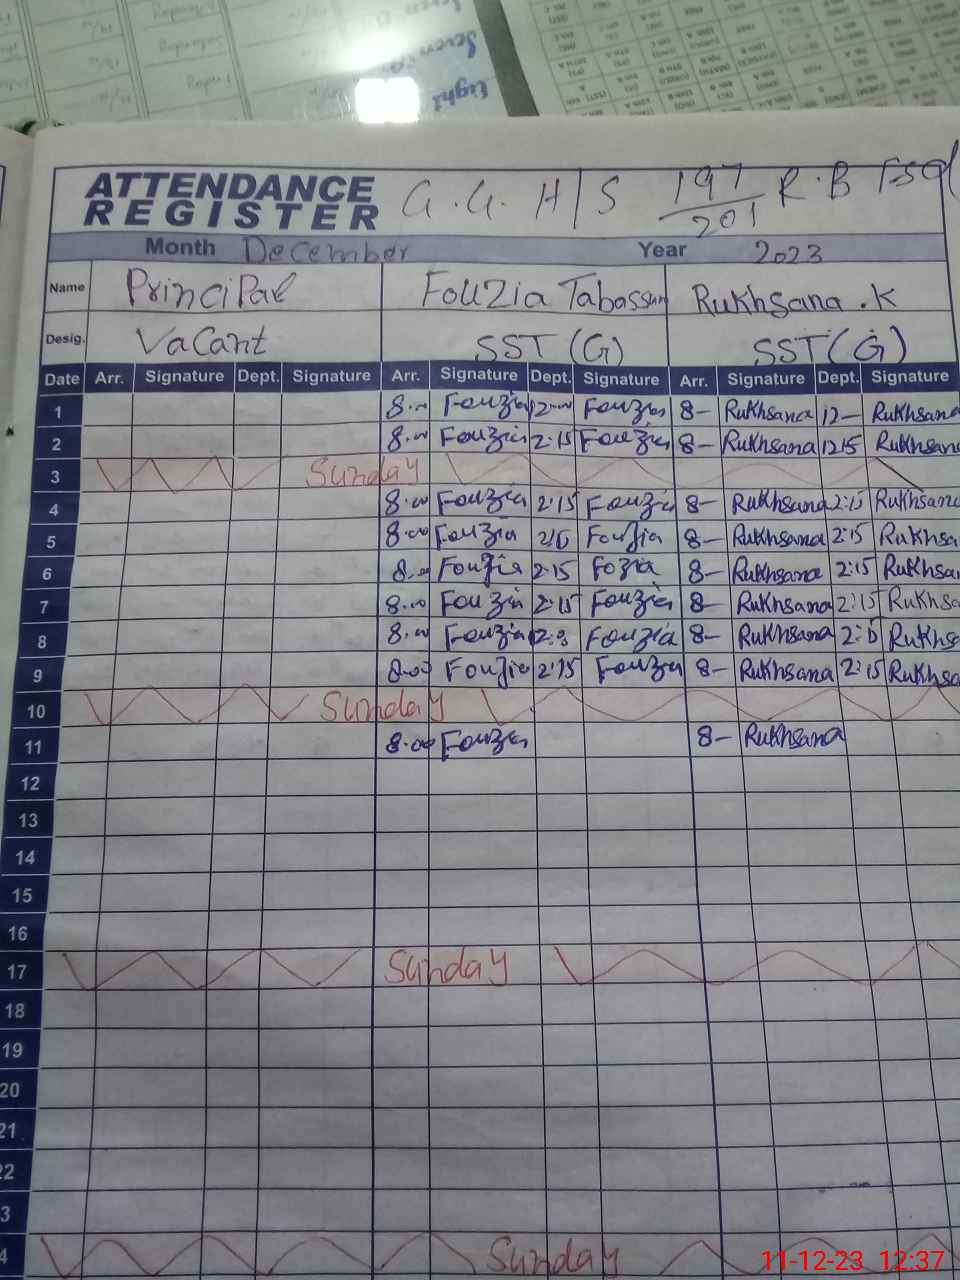 ATTENDANCE REGISTER G.G. H/S 197/201 R.B FSd
Month December Year 2023
Name Principal Fouzia Tabassum Rukhsana .K
Desig. Vacant SST (G) SST (G)
Date Arr. Signature Dept. Signature Arr. Signature Dept. Signature Arr. Signature Dept. Signature
1 8.00 Fouzia 12.00 Fouzia 8- Rukhsana 12- Rukhsana
2 8.00 Fouzia 2:15 Fouzia 8- Rukhsana 1215 Rukhsana
3 Sunday
4 8.00 Fouzia 2:15 Fouzia 8- Rukhsana 2:15 Rukhsana
5 8.00 Fouzia Fouzia 8- Rukhsana 2:15 Rukhsa
6 8.00 Fouzia 2:15 Fozia 8- Rukhsana 2:15 Rukhsa
7 8.00 Fouzia 2:15 Fouzia 8- Rukhsana 2:15 Rukhsa
8 8.00 Fouzia Fouzia 8- Rukhsana Rukhs
9 8.00 Fouzia 2:15 Fouzia 8- Rukhsana 2:15 Rukhsa
10 Sunday
11 8.00 Fouzia 8- Rukhsana
12
13
14
15
16
17 Sunday
18
19
20
21
22
3
4 Sunday
11-12-23 12:37